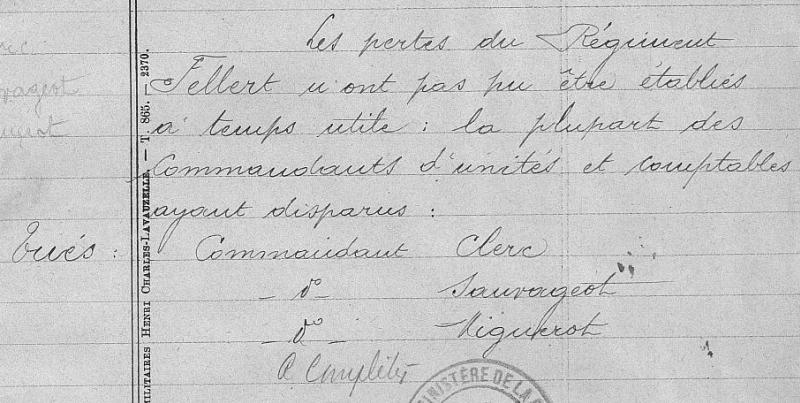 Les pertes du Régiment
Fellert n'ont pas pu être établies
à temps utile : la plupart des
Commandants d'unités et comptables
ayant disparus :
Tués : Commandant Clerc
- d° - Sauvageot
- d° - Viguerot
A Compléter
MILITAIRES HENRI CHARLES-LAVAUZELLE. — T. 865. — 2370.
MINISTÈRE DE LA